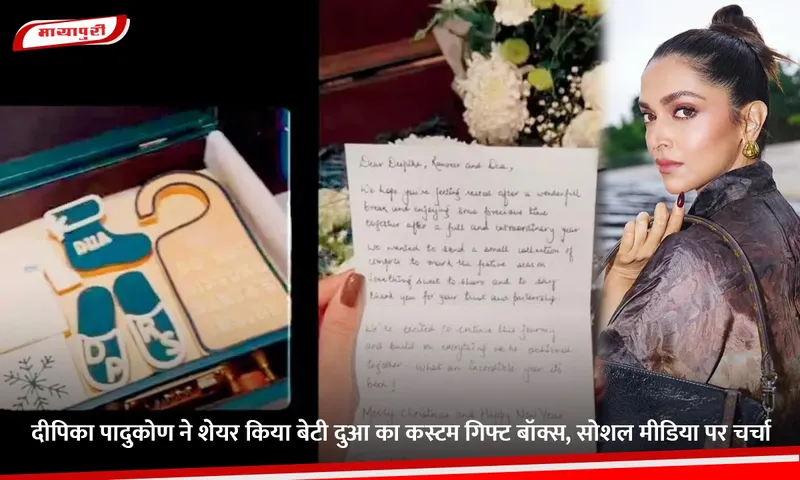 मायापुरी
DUA
DP
RS
Dear Deepika, Ranveer and Dua,
We hope you're feeling rested after a wonderful
break and enjoying some precious time
together after a full and extraordinary year
We wanted to send a small collection of
comforts to mark the festive season
something sweet to share and to say
thank you for your trust and partnership
We're excited to continue this journey
and build on everything we've achieved
together - what an incredible year it's
been!
Merry Christmas and Happy New Year
दीपिका पादुकोण ने शेयर किया बेटी दुआ का कस्टम गिफ्ट बॉक्स, सोशल मीडिया पर चर्चा